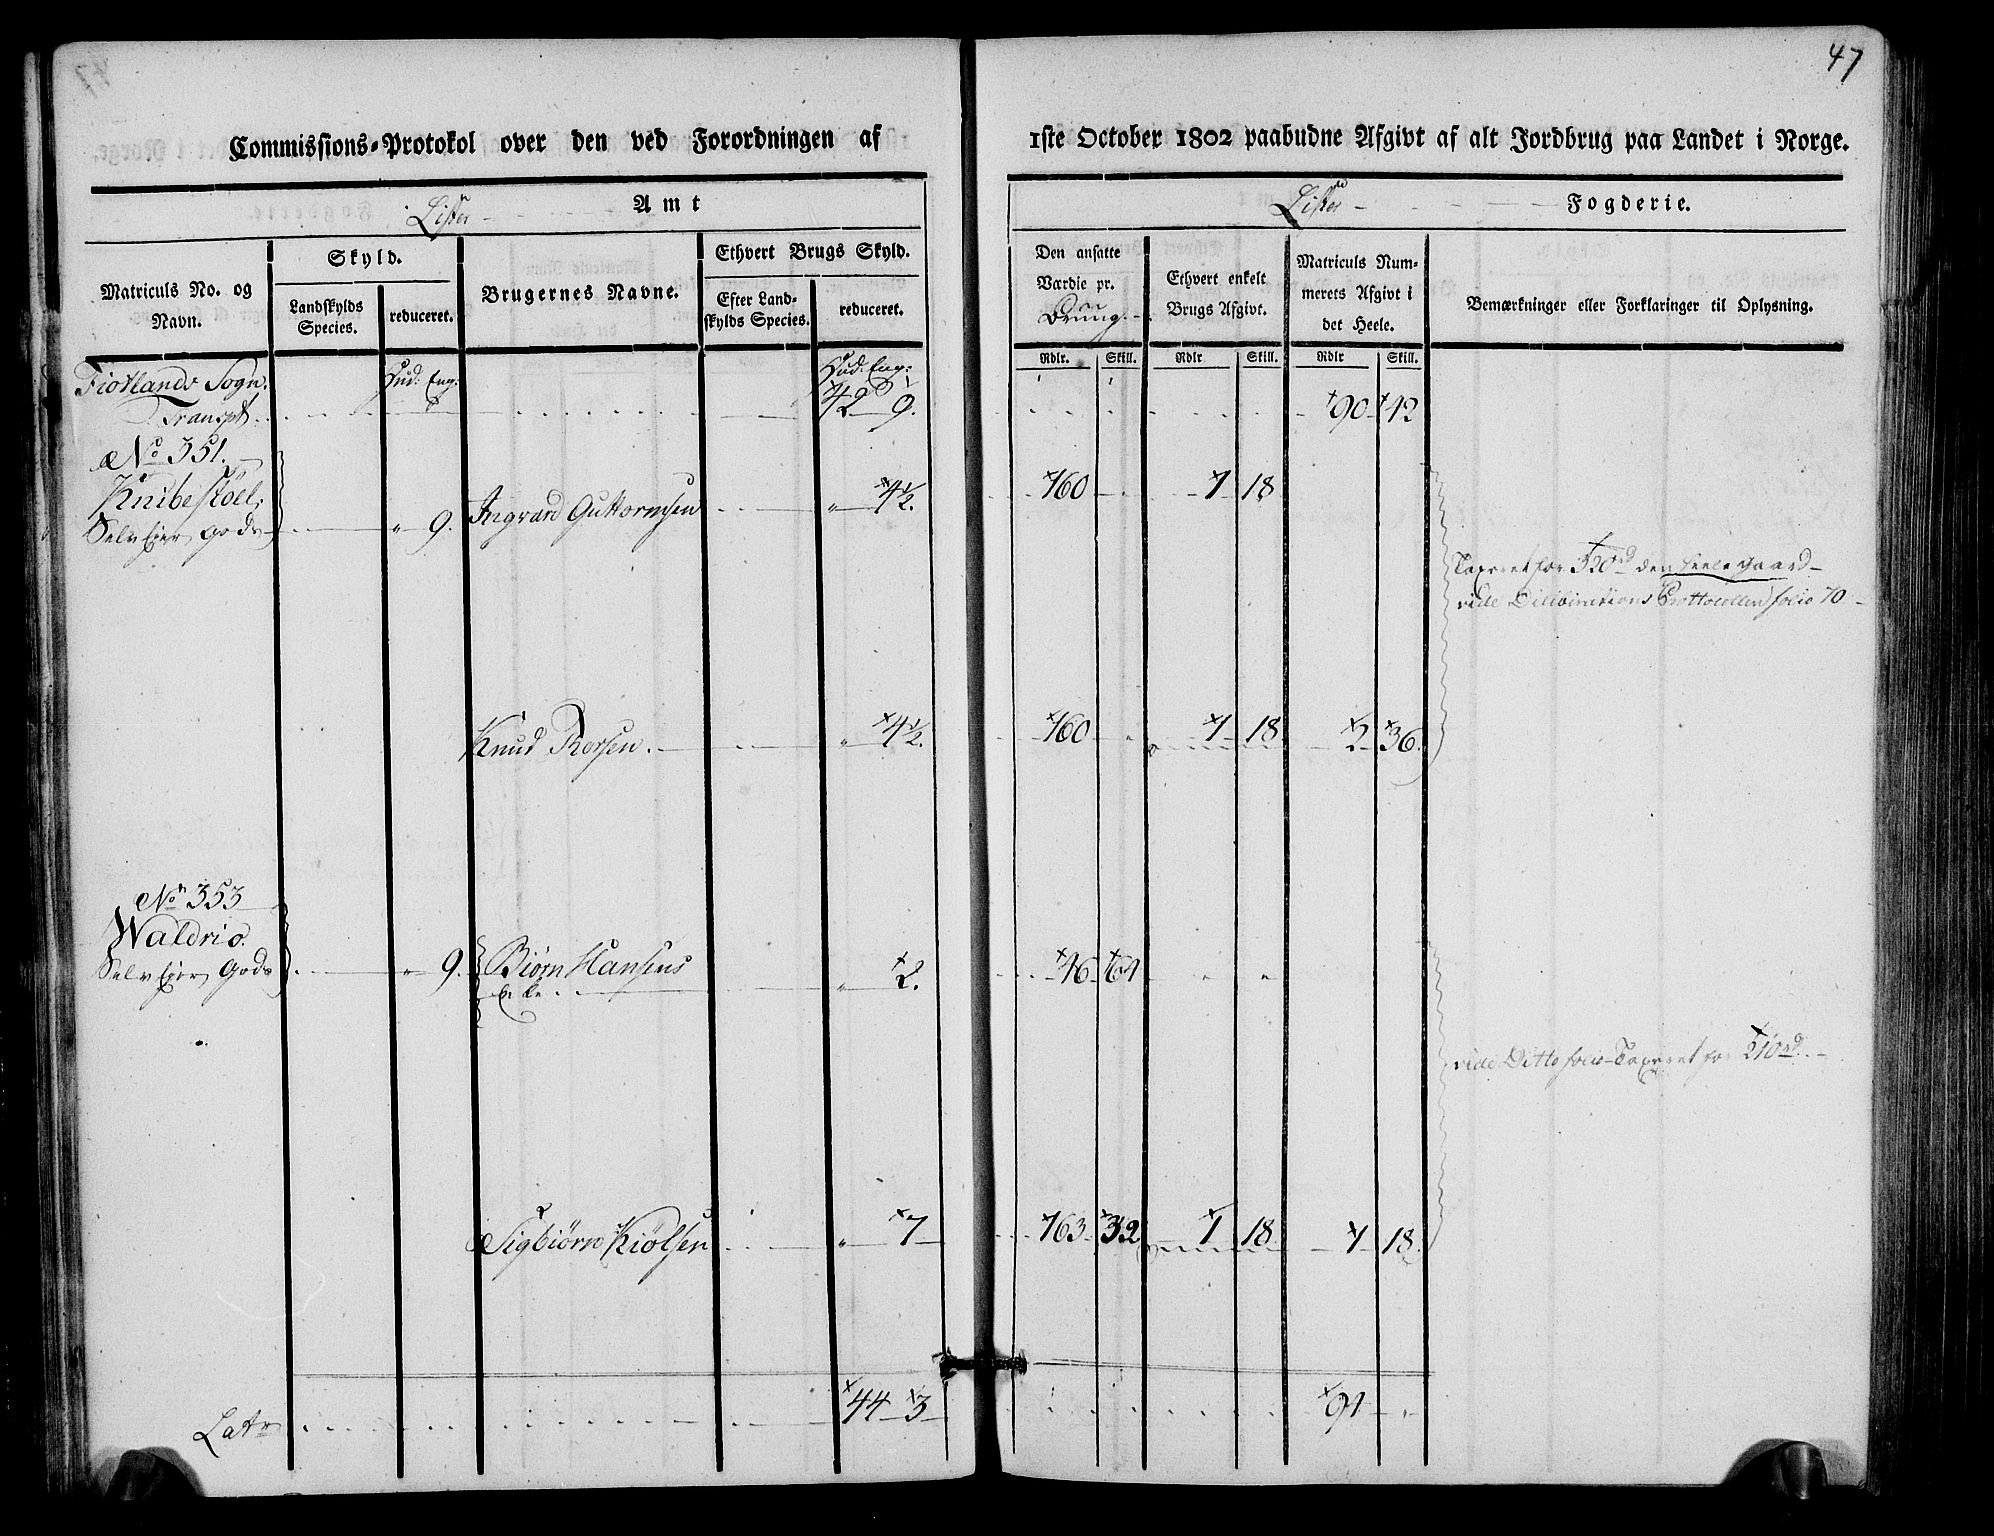 47
Commissions-Protokol over den ved Forordningen af 1ste October 1802 paabudne Afgivt af alt Jordbrug paa Landet i Norge.
Lister Amt
Lister Fogderie.
Matriculs No. og Navn.
Skyld.
Landskylds Species.
reduceret.
Brugernes Navne.
Ethvert Brugs Skyld.
Efter Landskylds Species.
reduceret.
Den ansatte Værdie pr. Brug.
Ethvert enkelt Brugs Afgivt.
Matriculs Nummerets Afgivt i det Heele.
Bemærkninger eller Forklaringer til Oplysning.
Rdlr. Skill. Rdlr Skill. Rdlr Skill.
Fiotlands Sogn. Hud: Eng: Hud: Eng:
Transpt. 42 9. 90 42
No 351.
Knibeskoel,
Selv Eier Gods 9. Ingvard Guttormsen 4½. 160 1 18
Taxeret for 320rd den heele gaard
vide Deliberations Prottocollen folio 70
Knud Rorsen. 4½. 160 1 18 2 36.
No 353
Waldrio.
Selv Eier Gods 9. Biørn Hansens 2. 46 64
Enke
vide Ditto folio Taxeret for 210rd.
Sigbiørn Kiølsen 7 163 32 1 18 1 18.
Latr 44 3 91